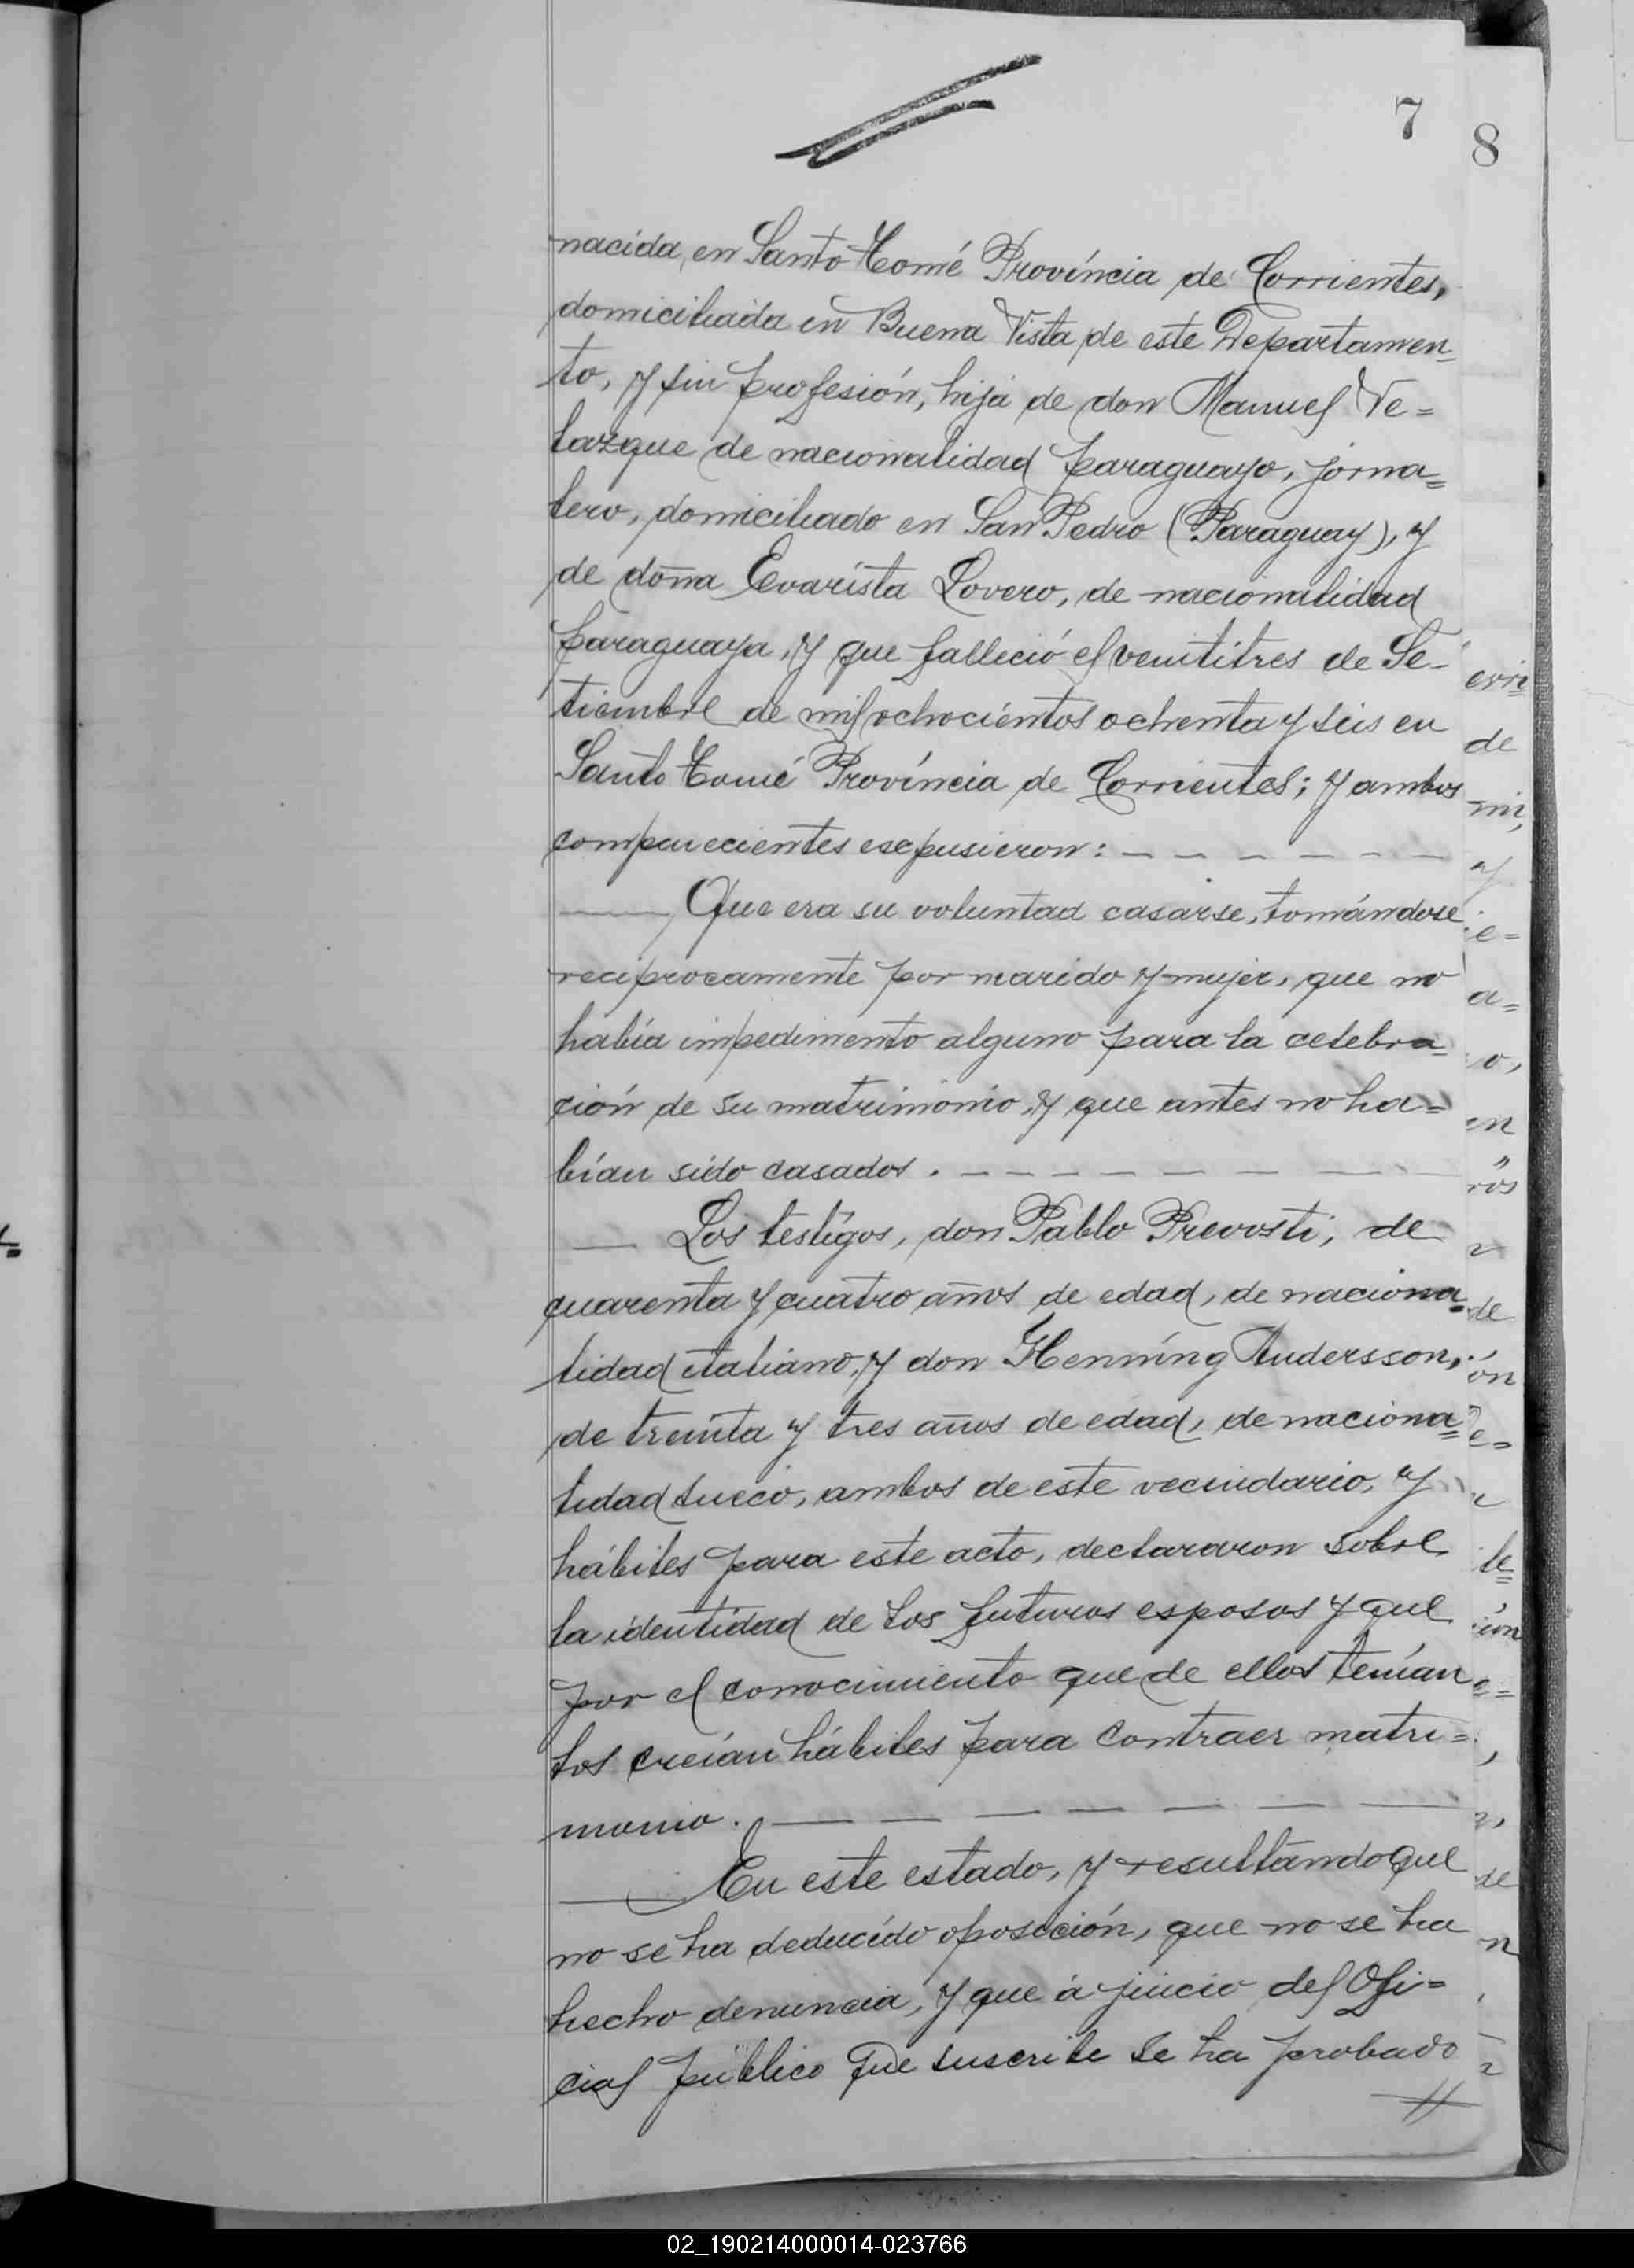 7
8
nacida, en Santo Tomé Província de Corrientes,
domiciliada en Buena Vista de este Departamen=
to, y sin profesión, hija de don Manuel Ve=
lazque de nacionalidad paraguayo, jorna=
lero, domiciliado en San Pedro (Paraguay), y
de doña Evarista Lovero, de nacionalidad
paraguaya, y que falleció el veintitres de Se-
tiembre de mil ochocientos ochenta y seis en
Santo Tomé Província de Corrientes; y ambos
comparecientes expusieron: - - - - - -
—— Que era su voluntad casarse, tomándose
reciprocamente por marido y mujer, que no
había impedimento alguno para la celebra=
ción de su matrimonio, y que antes no ha=
bían sido casados. - - - - - - -
— Los testigos, don Pablo Prevosti, de
cuarenta y cuatro años de edad, de naciona=
lidad italiano, y don Henning Andersson,
de treinta y tres años de edad, de naciona=
lidad sueco, ambos de este vecindario, y
hábiles para este acto, declararon sobre
la identidad de los futuros esposos y que
por el conocimiento que de ellos tenían
los creían hábiles para contraer matri=
monio. — — — — — — —
—— En este estado, y resultando que
no se ha deducido oposición, que no se ha
hecho denuncia, y que á juicio del Ofi=
cial público que suscribe se ha probado
02_190214000014-023766